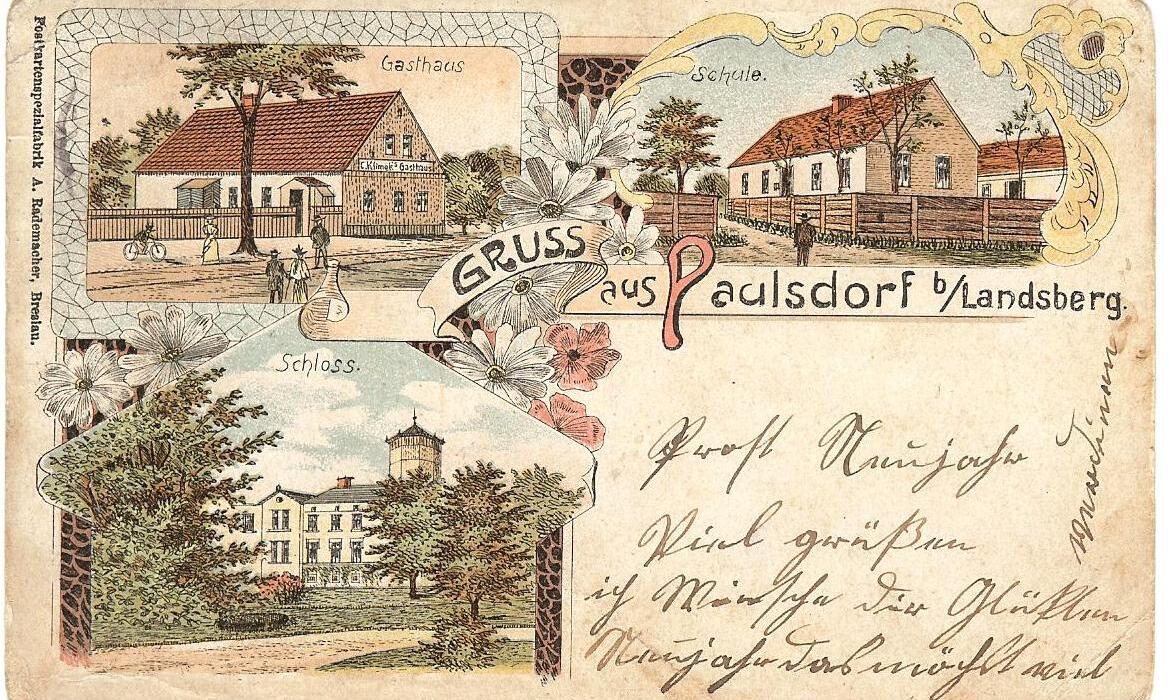 Postkartenspezialfabrik A. Rademacher, Breslau.
Gasthaus
C. Klimek's Gasthaus
Schule.
GRUSS
aus Paulsdorf b/Landsberg.
Schloss.
Prost Neujahr
Viel grüßen
ich Winsche dir Glükken
Neujahr das möchst viel